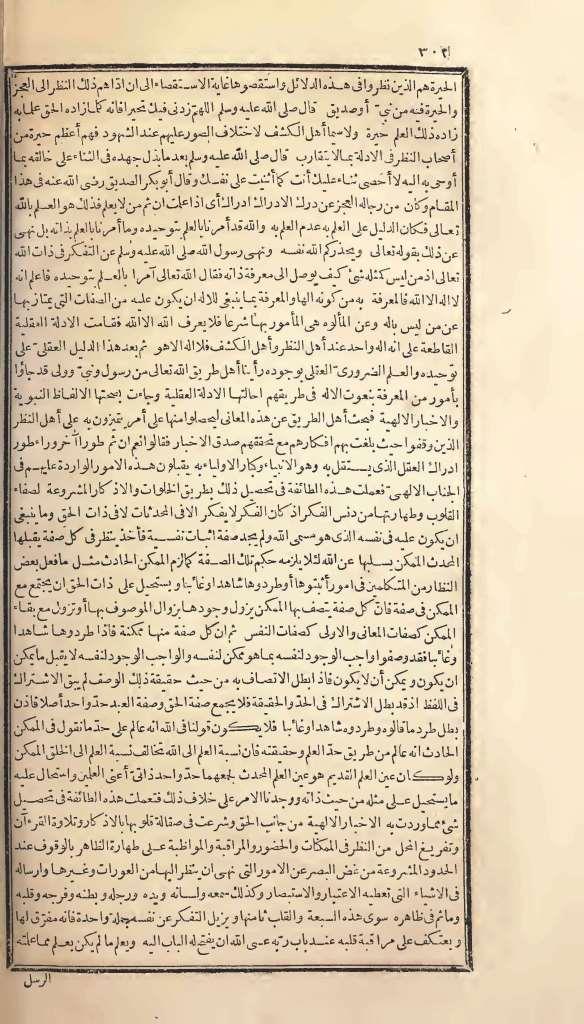 ٣٠٢
الحيرة هم الذين نظروا في هذه الدلائل واستقصوها غاية الاستقصاء الى ان أداهم ذلك النظر الى العجز
والحيرة فيه من نبيّ أو صديق قال صلى الله عليه وسلم اللهم زدني فيك تحيرا فانه كلما زاده الحق علما به
زاده ذلك العلم حيرة ولا سيما أهل الكشف لاختلاف الصور عليهم عند الشهود فهم أعظم حيرة من
أصحاب النظر في الادلة بما لا يتقارب قال صلى الله عليه وسلم بعد ما بذل جهده في الثناء على خالقه بما
أوحى به اليه لا أحصى ثناء عليك أنت كما أثنيت على نفسك وقال أبو بكر الصديق رضى الله عنه في هذا
المقام وكان من رجاله العجز عن درك الادراك ادراك أى اذا علمت ان ثم من لا يعلم فذلك هو العلم بالله
تعالى فكان الدليل على العلم به عدم العلم به والله قد أمرنا بالعلم بتوحيده وما أمرنا بالعلم بذاته بل نهى
عن ذلك بقوله تعالى ويحذركم الله نفسه ونهى رسول الله صلى الله عليه وسلم عن التفكر في ذات الله
تعالى اذ من ليس كمثله شئ كيف يوصل الى معرفة ذاته فقال الله تعالى آمرا بالعلم بتوحيده فاعلم انه
لا اله الا الله فالمعرفة به من كونه الها والمعرفة بما ينبغي للاله ان يكون عليه من الصفات التي يمتاز بها
عن من ليس باله وعن المألوه هي المأمور بها شرعا فلا يعرف الله الا الله فقامت الادلة العقلية
القاطعة على انه اله واحد عند أهل النظر وأهل الكشف فلا اله الا هو ثم بعد هذا الدليل العقلي على
توحيده والعلم الضروري العقلي بوجوده رأينا أهل طريق الله تعالى من رسول ونبيّ وولى قد جاؤا
بأمور من المعرفة بنعوت الاله في طريقهم احالتها الادلة العقلية وجاءت بصحتها الالفاظ النبوية
والاخبار الالهية فبحث أهل الطريق عن هذه المعاني ليحصلوا منها على أمر يتميزون به على أهل النظر
الذين وقفوا حيث بلغت بهم افكارهم مع تحققهم صدق الاخبار فقالوا نعم ان ثم طورا آخر وراء طور
ادراك العقل الذي يستقل به وهو الانبياء وكبار الاولياء به يقبلون هذه الامور الواردة عليهم في
الجناب الالهي فعملت هذه الطائفة في تحصيل ذلك بطريق الخلوات والاذكار المشروعة لصفاء
القلوب وطهارتها من دنس الفكر اذ كان الفكر لا يفكر الا في المحدثات لا في ذات الحق وما ينبغي
ان يكون عليه في نفسه الذي هو مسمى الله ولم يجد صفة اثبات نفسية فأخذ ينظر في كل صفة يقبلها
المحدث الممكن يسلبها عن الله لئلا يلزمه حكم تلك الصفة كما لزم الممكن الحادث مثل ما فعل بعض
النظار من المتكلمين في امور أثبتوها وطردوها شاهدا وغائبا ويستحيل على ذات الحق ان يجتمع مع
الممكن في صفة فان كل صفة يتصف بها الممكن يزول وجودها بزوال الموصوف بها أو تزول مع بقاء
الممكن كصفات المعاني والاولى كصفات النفس ثم ان كل صفة منها ممكنة فاذا طردوها شاهدا
وغائبا فقد وصفوا واجب الوجود لنفسه بما هو ممكن لنفسه والواجب الوجود لنفسه لا يقبل ما يمكن
ان يكون ويمكن أن لا يكون فاذا بطل الاتصاف به من حيث حقيقة ذلك الوصف لم يبق الاشتراك
في اللفظ اذ قد بطل الاشتراك في الحد والحقيقة فلا يجمع صفة الحق وصفة العبد حد واحد أصلا فاذن
بطل طرد ما قالوه وطردوه شاهدا وغائبا فلا يكون قولنا في الله انه عالم على حد ما نقول في الممكن
الحادث انه عالم من طريق حد العلم وحقيقته فان نسبة العلم الى الله تخالف نسبة العلم الى الخلق الممكن
ولو كان عين العلم القديم هو عين العلم المحدث لجمعهما حد واحد ذاتي أعنى العلمين واستحال عليه
ما يستحيل على مثله من حيث ذاته ووجدنا الامر على خلاف ذلك فتعملت هذه الطائفة في تحصيل
شئ مما وردت به الاخبار الالهية من جانب الحق وشرعت في صقالة قلوبها بالاذكار وتلاوة القرءآن
وتفريغ المحل من النظر في الممكنات والحضور والمراقبة والمواظبة على طهارة الظاهر بالوقوف عند
الحدود المشروعة من غض البصر عن الامور التي نهى ان ينظر اليها من العورات وغيرها وارساله
في الاشياء التي تعطيه الاعتبار والاستبصار وكذلك سمعه ولسانه ويده ورجله وبطنه وفرجه وقلبه
وما ثم في ظاهره سوى هذه السبعة والقلب ثامنها ويزيل التفكر عن نفسه جملة واحدة فانه مفرق لها
ويعتكف على مراقبة قلبه عند باب ربه عسى الله ان يفتح له الباب اليه ويعلم ما لم يكن يعلم مما علمته
الرسل